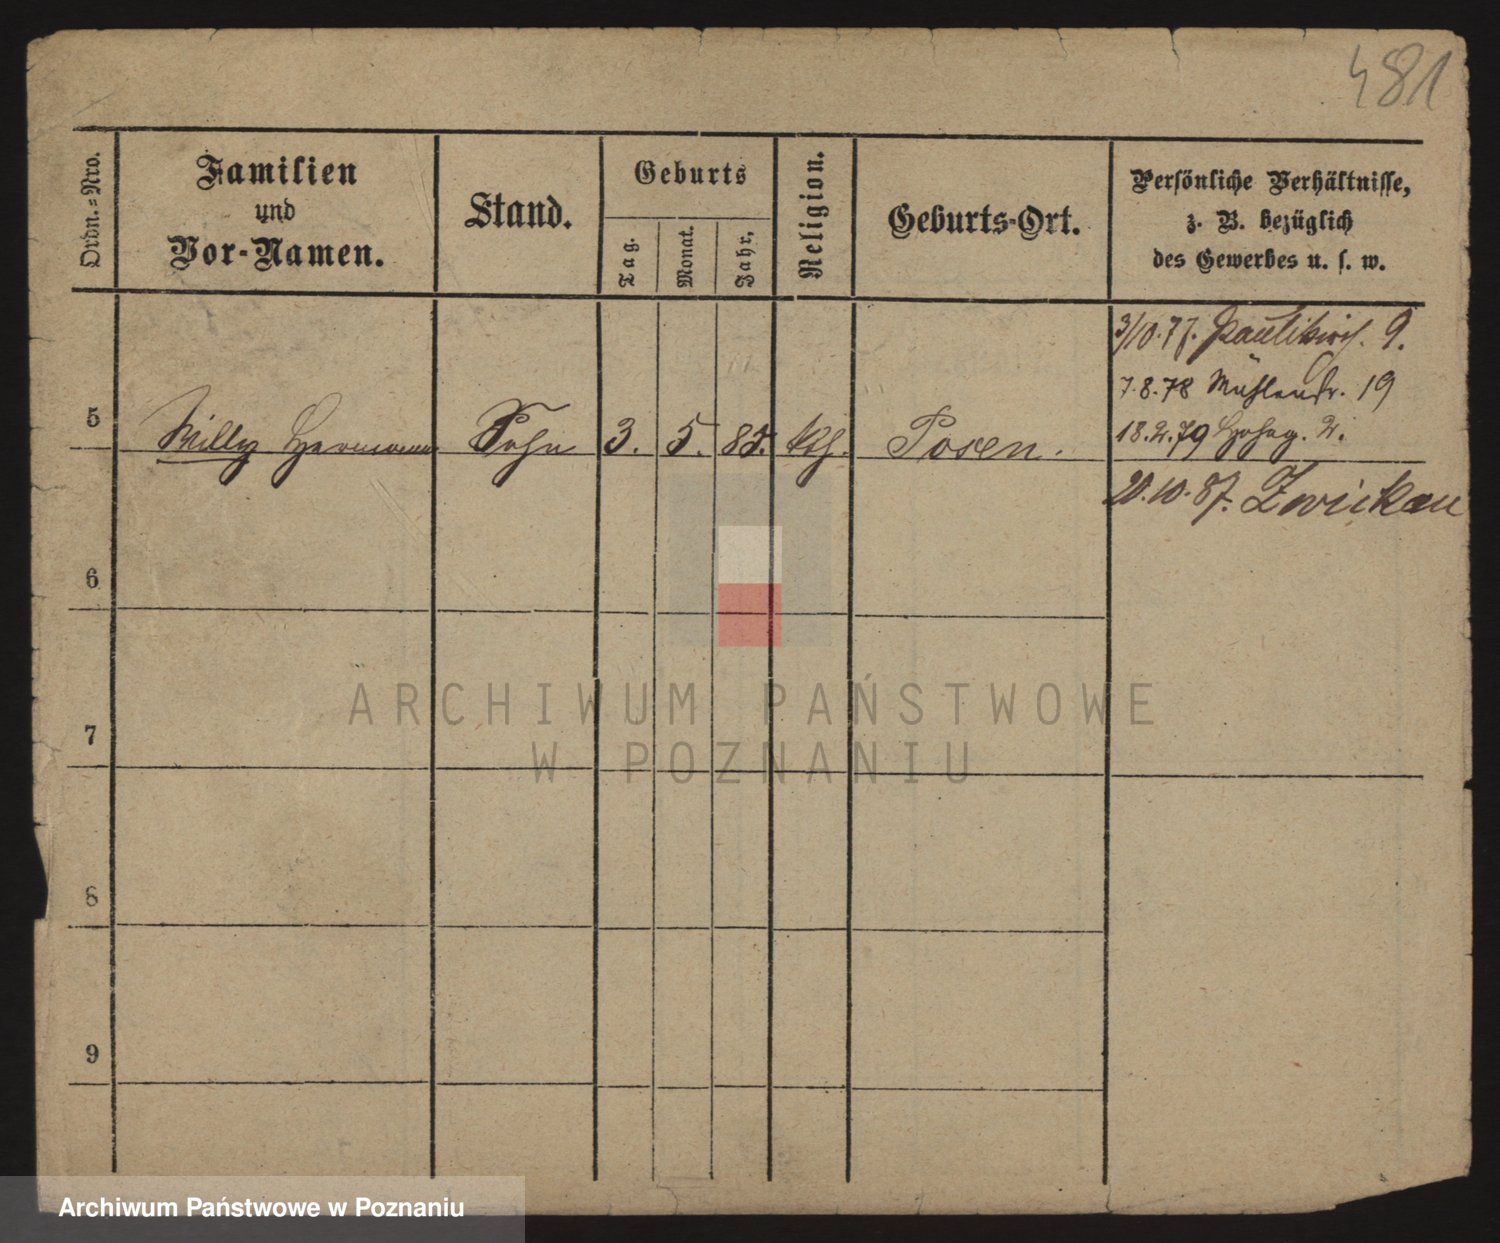 481
Ordn.=Nro.
Familien
und
Vor-Namen.
Stand.
Geburts
Tag.
Monat.
Jahr.
Religion.
Geburts-Ort.
Persönliche Verhältnisse,
z. B. bezüglich
des Gewerbes u. s. w.
3/10.77. Paulikirch. 9.
7.8.78 Mühlenstr. 19
18.2.79 2.
5 Willy Hermann Sohn 3. 5. 85. Posen.
20.10.87. Zwickau
6
7
8
9
ARCHIWUM PAŃSTWOWE
W POZNANIU
Archiwum Państwowe w Poznaniu